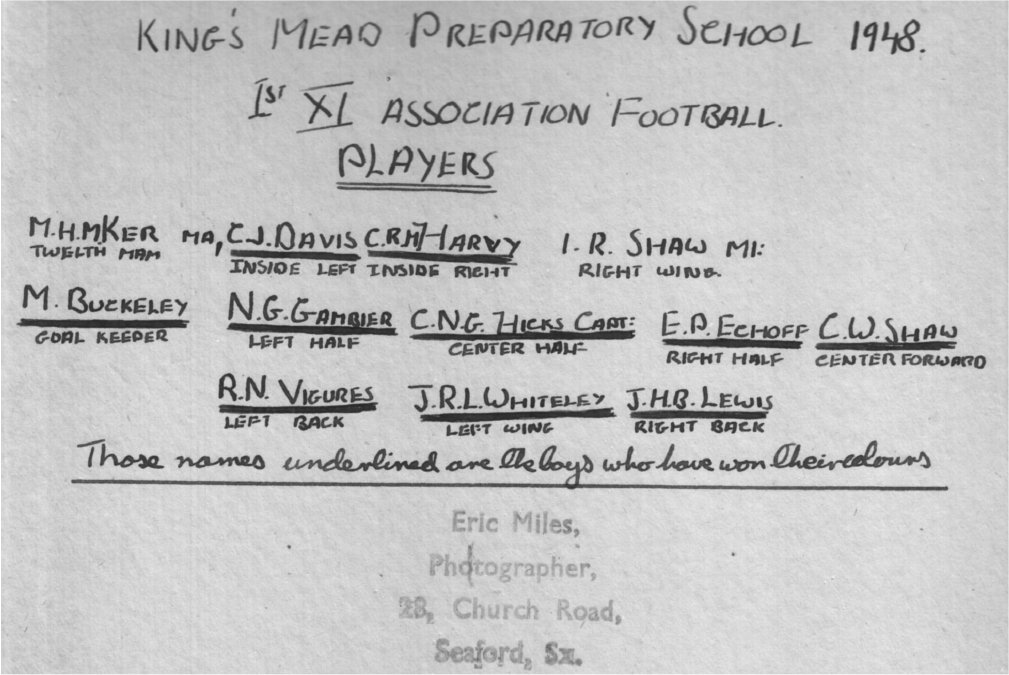 KING'S MEAD PREPARATORY SCHOOL 1948.
1ST XI ASSOCIATION FOOTBALL.
PLAYERS
M.H.MKER MA, C.J.DAVIS C.R.H.HARVY I.R. SHAW MI:
TWELTH MAM INSIDE LEFT INSIDE RIGHT RIGHT WING.
M. BUCKELEY N.G.GAMBIER C.N.G. HICKS CAPT: E.P.ECHOFF C.W.SHAW
GOAL KEEPER LEFT HALF CENTER HALF RIGHT HALF CENTER FORWARD
R.N. VIGURES J.R.L.WHITELEY J.H.B.LEWIS
LEFT BACK LEFT WING RIGHT BACK
Those names underlined are the boys who have won their colours
Eric Miles,
Photographer,
28, Church Road,
Seaford, Sx.